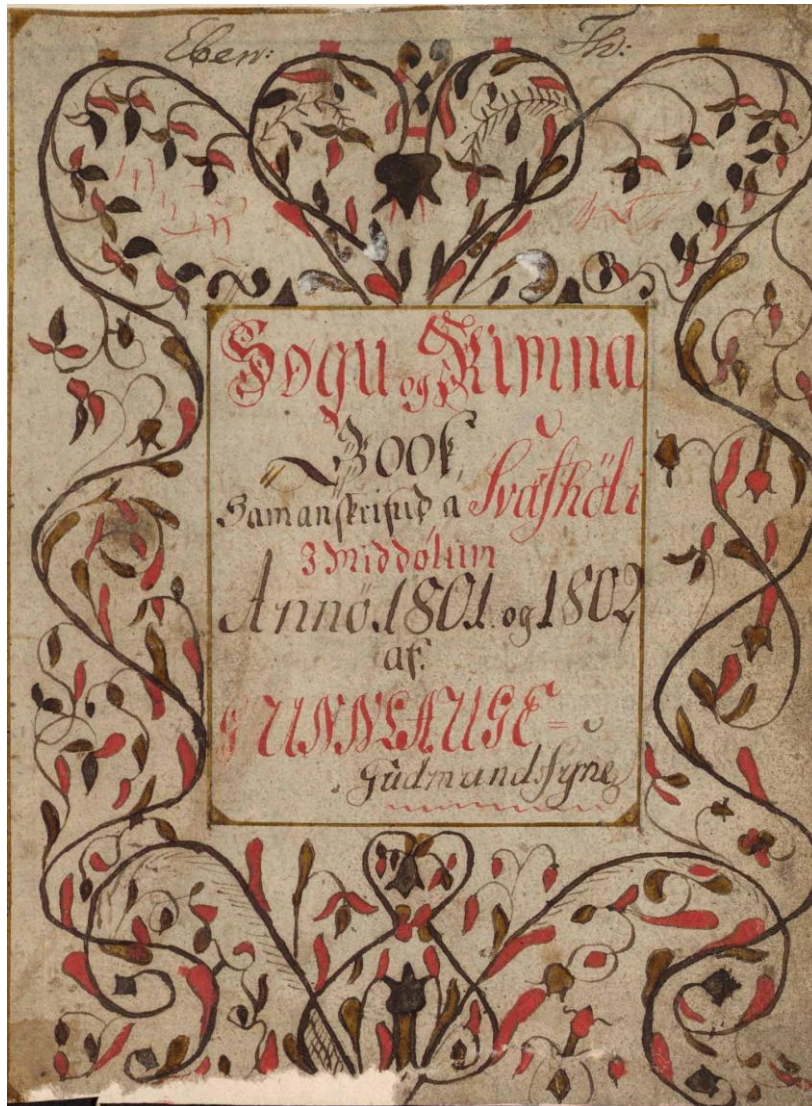 Eben: Th:
Søgu og Rimna
Book,
Samanskrifud a Svafhöli
J Middølum
Annö 1801. og 1802
af.
GUNNLAUGE=
Gudmundssyne